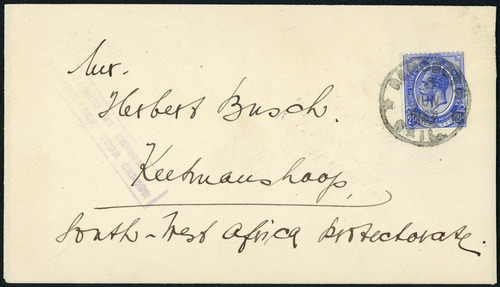 Mr.
Herbert Busch.
Keetmanshoop,
South-West Africa Protectorate.